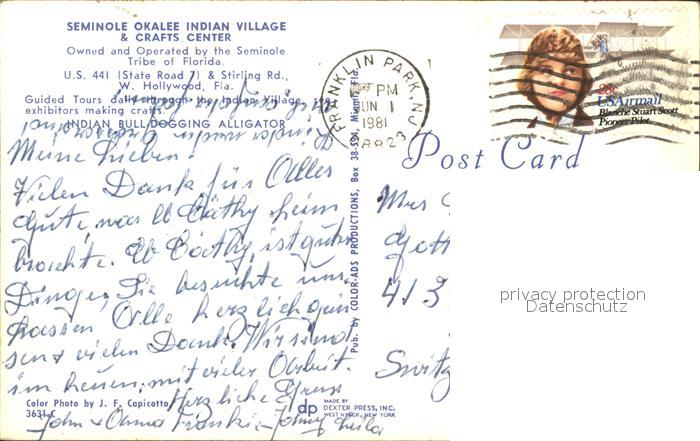 SEMINOLE OKALEE INDIAN VILLAGE
& CRAFTS CENTER
Owned and Operated by the Seminole
Tribe of Florida.
U.S. 441 (State Road 7) & Stirling Rd.,
W. Hollywood, Fla.
Guided Tours daily through the Indian Village, see
exhibitors making crafts.
INDIAN BULL DOGGING ALLIGATOR
Meine Lieben!
Vielen Dank für Alles
gute, was Cathy heim
brachte. Cathy ist guter
Dinge, Sie besuchte uns.
lassen Alle herzlich
und vielen Dank. Wir sind
im heuen mit vieler Arbeit.
Herzliche Grüsse
John + Anna Franki - Johny Sheila
Color Photo by J. F. Capicotto
3631-C
Pub. by COLOR-ADS PRODUCTIONS, Box 38-591, Miami, Fla.
dp
MADE BY
DEXTER PRESS, INC.
WEST NYACK, NEW YORK
FRANKLIN PARK, NJ
PM
JUN 1
1981
08823
28c
USAirmail
Blanche Stuart Scott
Pioneer Pilot
Post Card
Mrs
Gott
413
Switz
privacy protection
Datenschutz